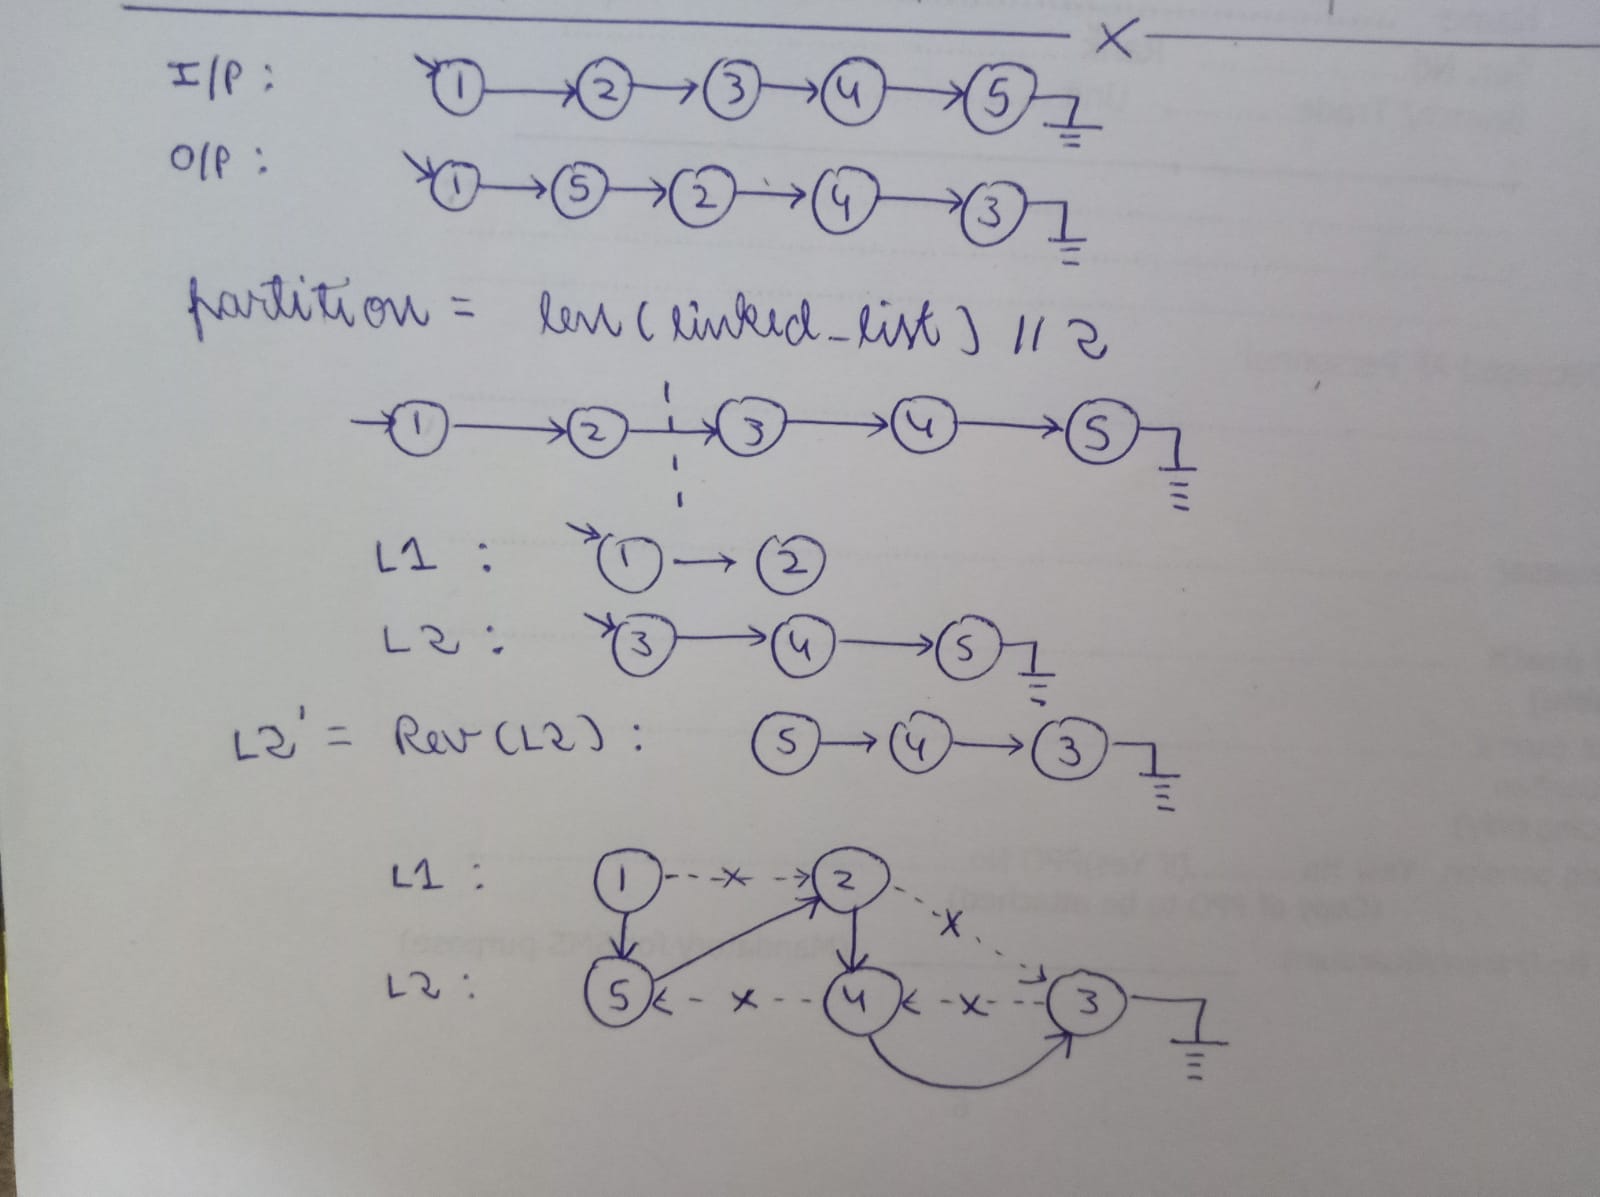 X
I/P : 1 → 2 → 3 → 4 → 5
O/P : 1 → 5 → 2 → 4 → 3
partition = len(linked_list) // 2
→ 1 → 2 → 3 → 4 → 5
L1 : 1 → 2
L2 : 3 → 4 → 5
L2' = Rev(L2) : 5 → 4 → 3
L1 : 1 - - x - → 2 - - x - -
L2 : 5 ← - x - - 4 ← - x - - 3